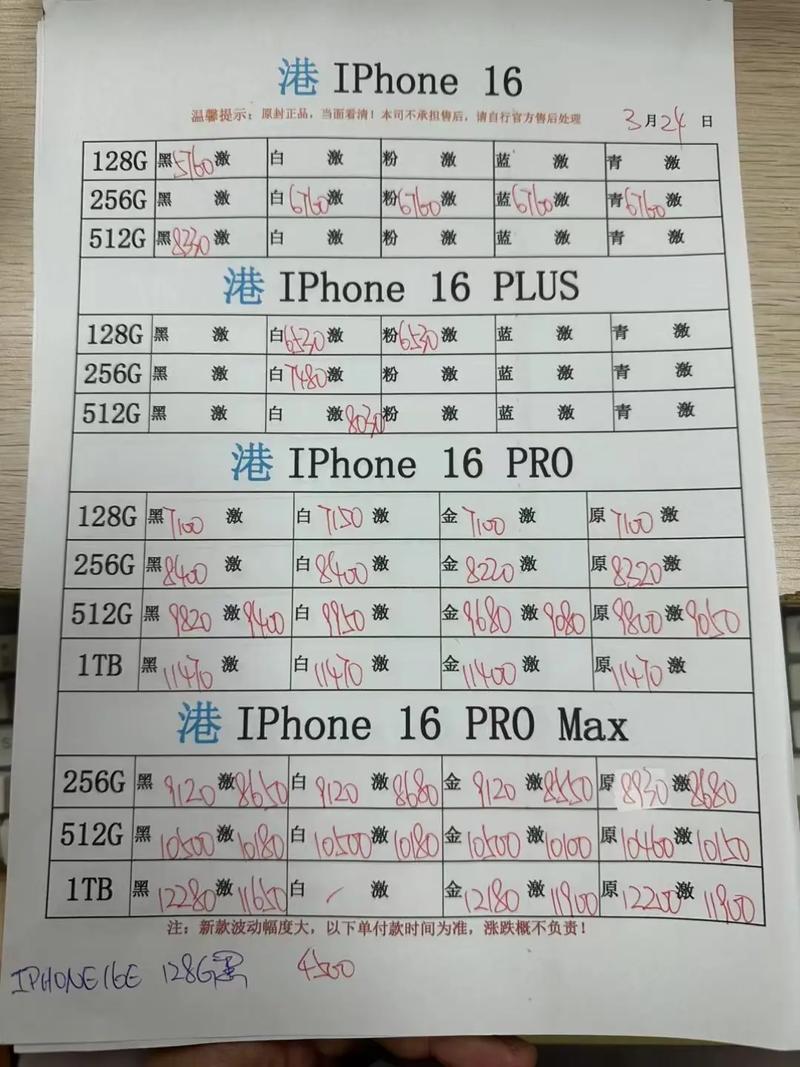 港 IPhone 16
温馨提示：原封正品，当面看清！本司不承担售后，请自行官方售后处理 3月24日
128G 黑5760激 白 激 粉 激 蓝 激 青 激
256G 黑 激 白6760激 粉6760激 蓝6760激 青6760激
512G 黑8330激 白 激 粉 激 蓝 激 青 激
港 IPhone 16 PLUS
128G 黑 激 白6530激 粉6530激 蓝 激 青 激
256G 黑 激 白7480激 粉 激 蓝 激 青 激
512G 黑 激 白 激8030 粉 激 蓝 激 青 激
港 IPhone 16 PRO
128G 黑7100激 白7150激 金7100激 原7100激
256G 黑8400激 白8400激 金8220激 原8320激
512G 黑9820激9400 白9950激 金9680激9080 原9800激9050
1TB 黑11470激 白11470激 金11400激 原11470激
港 IPhone 16 PRO Max
256G 黑9120激8650 白9120激8680 金9120激8550 原8930激8680
512G 黑10500激10180 白10500激10180 金10500激10100 原10460激10150
1TB 黑12280激11650 白 / 激 金12180激11900 原12200激11900
注：新款波动幅度大，以下单付款时间为准，涨跌概不负责！
IPHONE16E 128G黑 4500